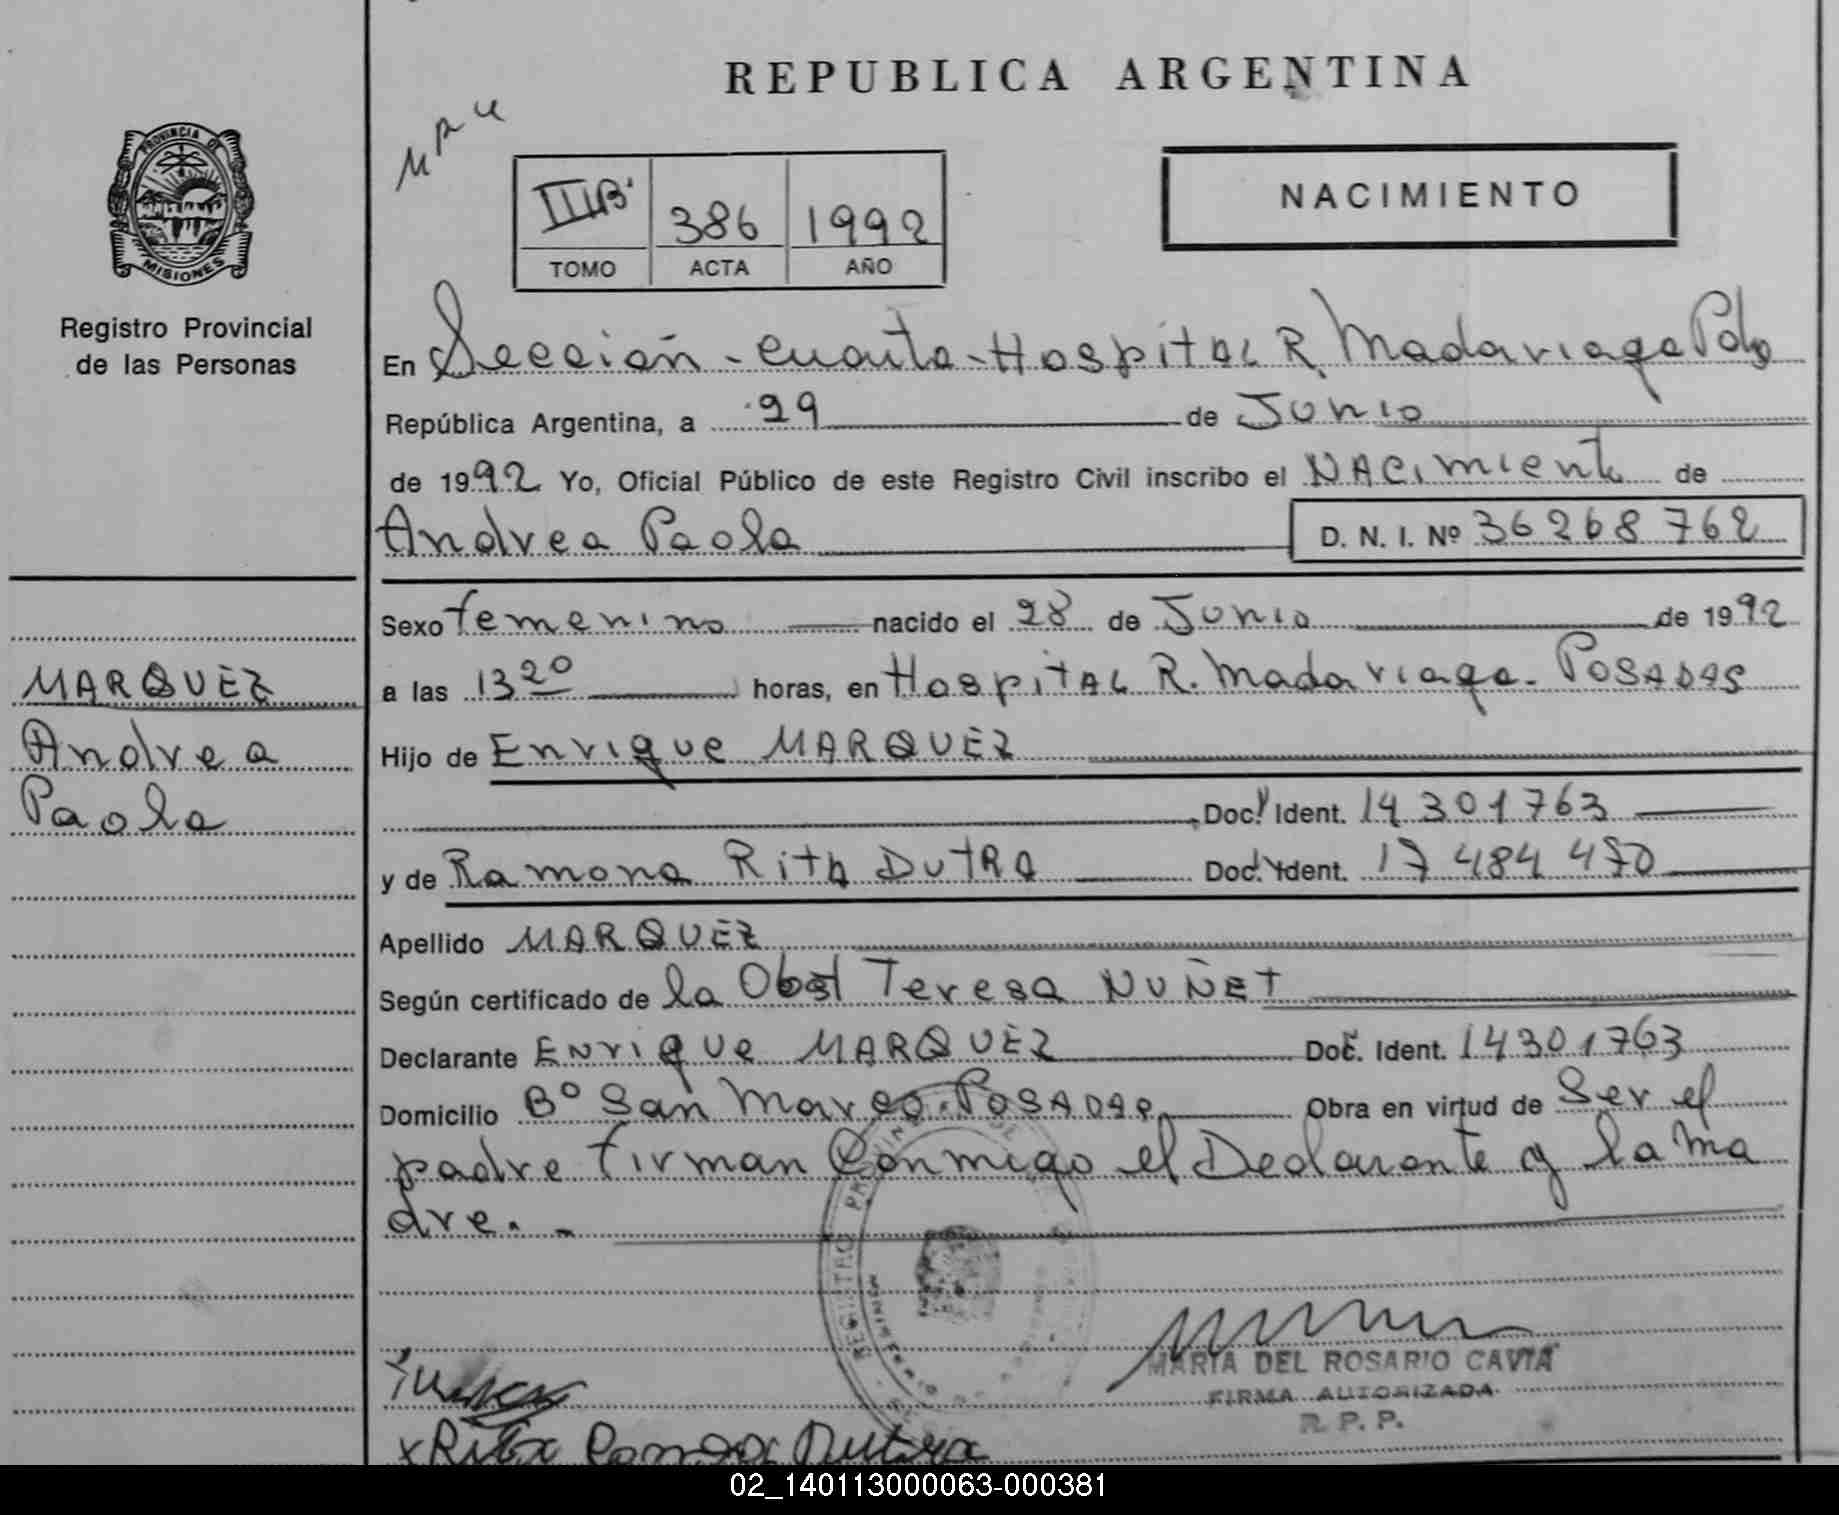 REPUBLICA ARGENTINA
PROVINCIA DE
MISIONES
Registro Provincial
de las Personas
MARQUEZ
Andrea
Paola
IIIB'
386
1992
TOMO
ACTA
AÑO
NACIMIENTO
En Sección - cuarta - Hospital R. Madariaga Pdas
República Argentina, a 29 de Junio
de 1992 Yo, Oficial Público de este Registro Civil inscribo el Nacimiento de
Andrea Paola D. N. I. Nº 36268762
Sexo femenino nacido el 28 de Junio de 1992
a las 13 20 horas, en Hospital R. Madariaga - Posadas
Hijo de Enrique MARQUEZ
Doc. Ident. 14 301763
y de Ramona Rita DUTRA Doc. Ident. 17 484 470
Apellido MARQUEZ
Según certificado de la Obst Teresa NUÑET
Declarante Enrique MARQUEZ Doc. Ident. 14301763
Domicilio Bº San Marco - Posadas Obra en virtud de ser el
padre firman Conmigo el Declarante y la ma
dre. -
MARIA DEL ROSARIO CAVIA
FIRMA AUTORIZADA
R. P. P.
x Rita Ramona Dutra
02_140113000063-000381